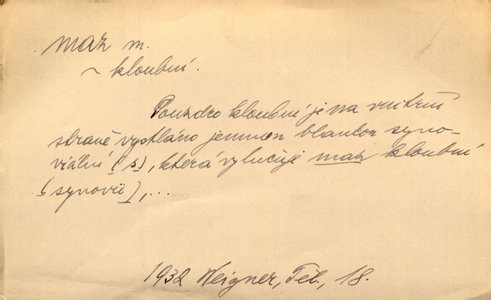 maz m.
~ kloubní.
Pouzdro kloubní je na vnitřní
straně vystláno jemnou blankou syno-
viální (s), která vylučuje maz kloubní
(synovii),...
1932 Weigner, Těl., 18.